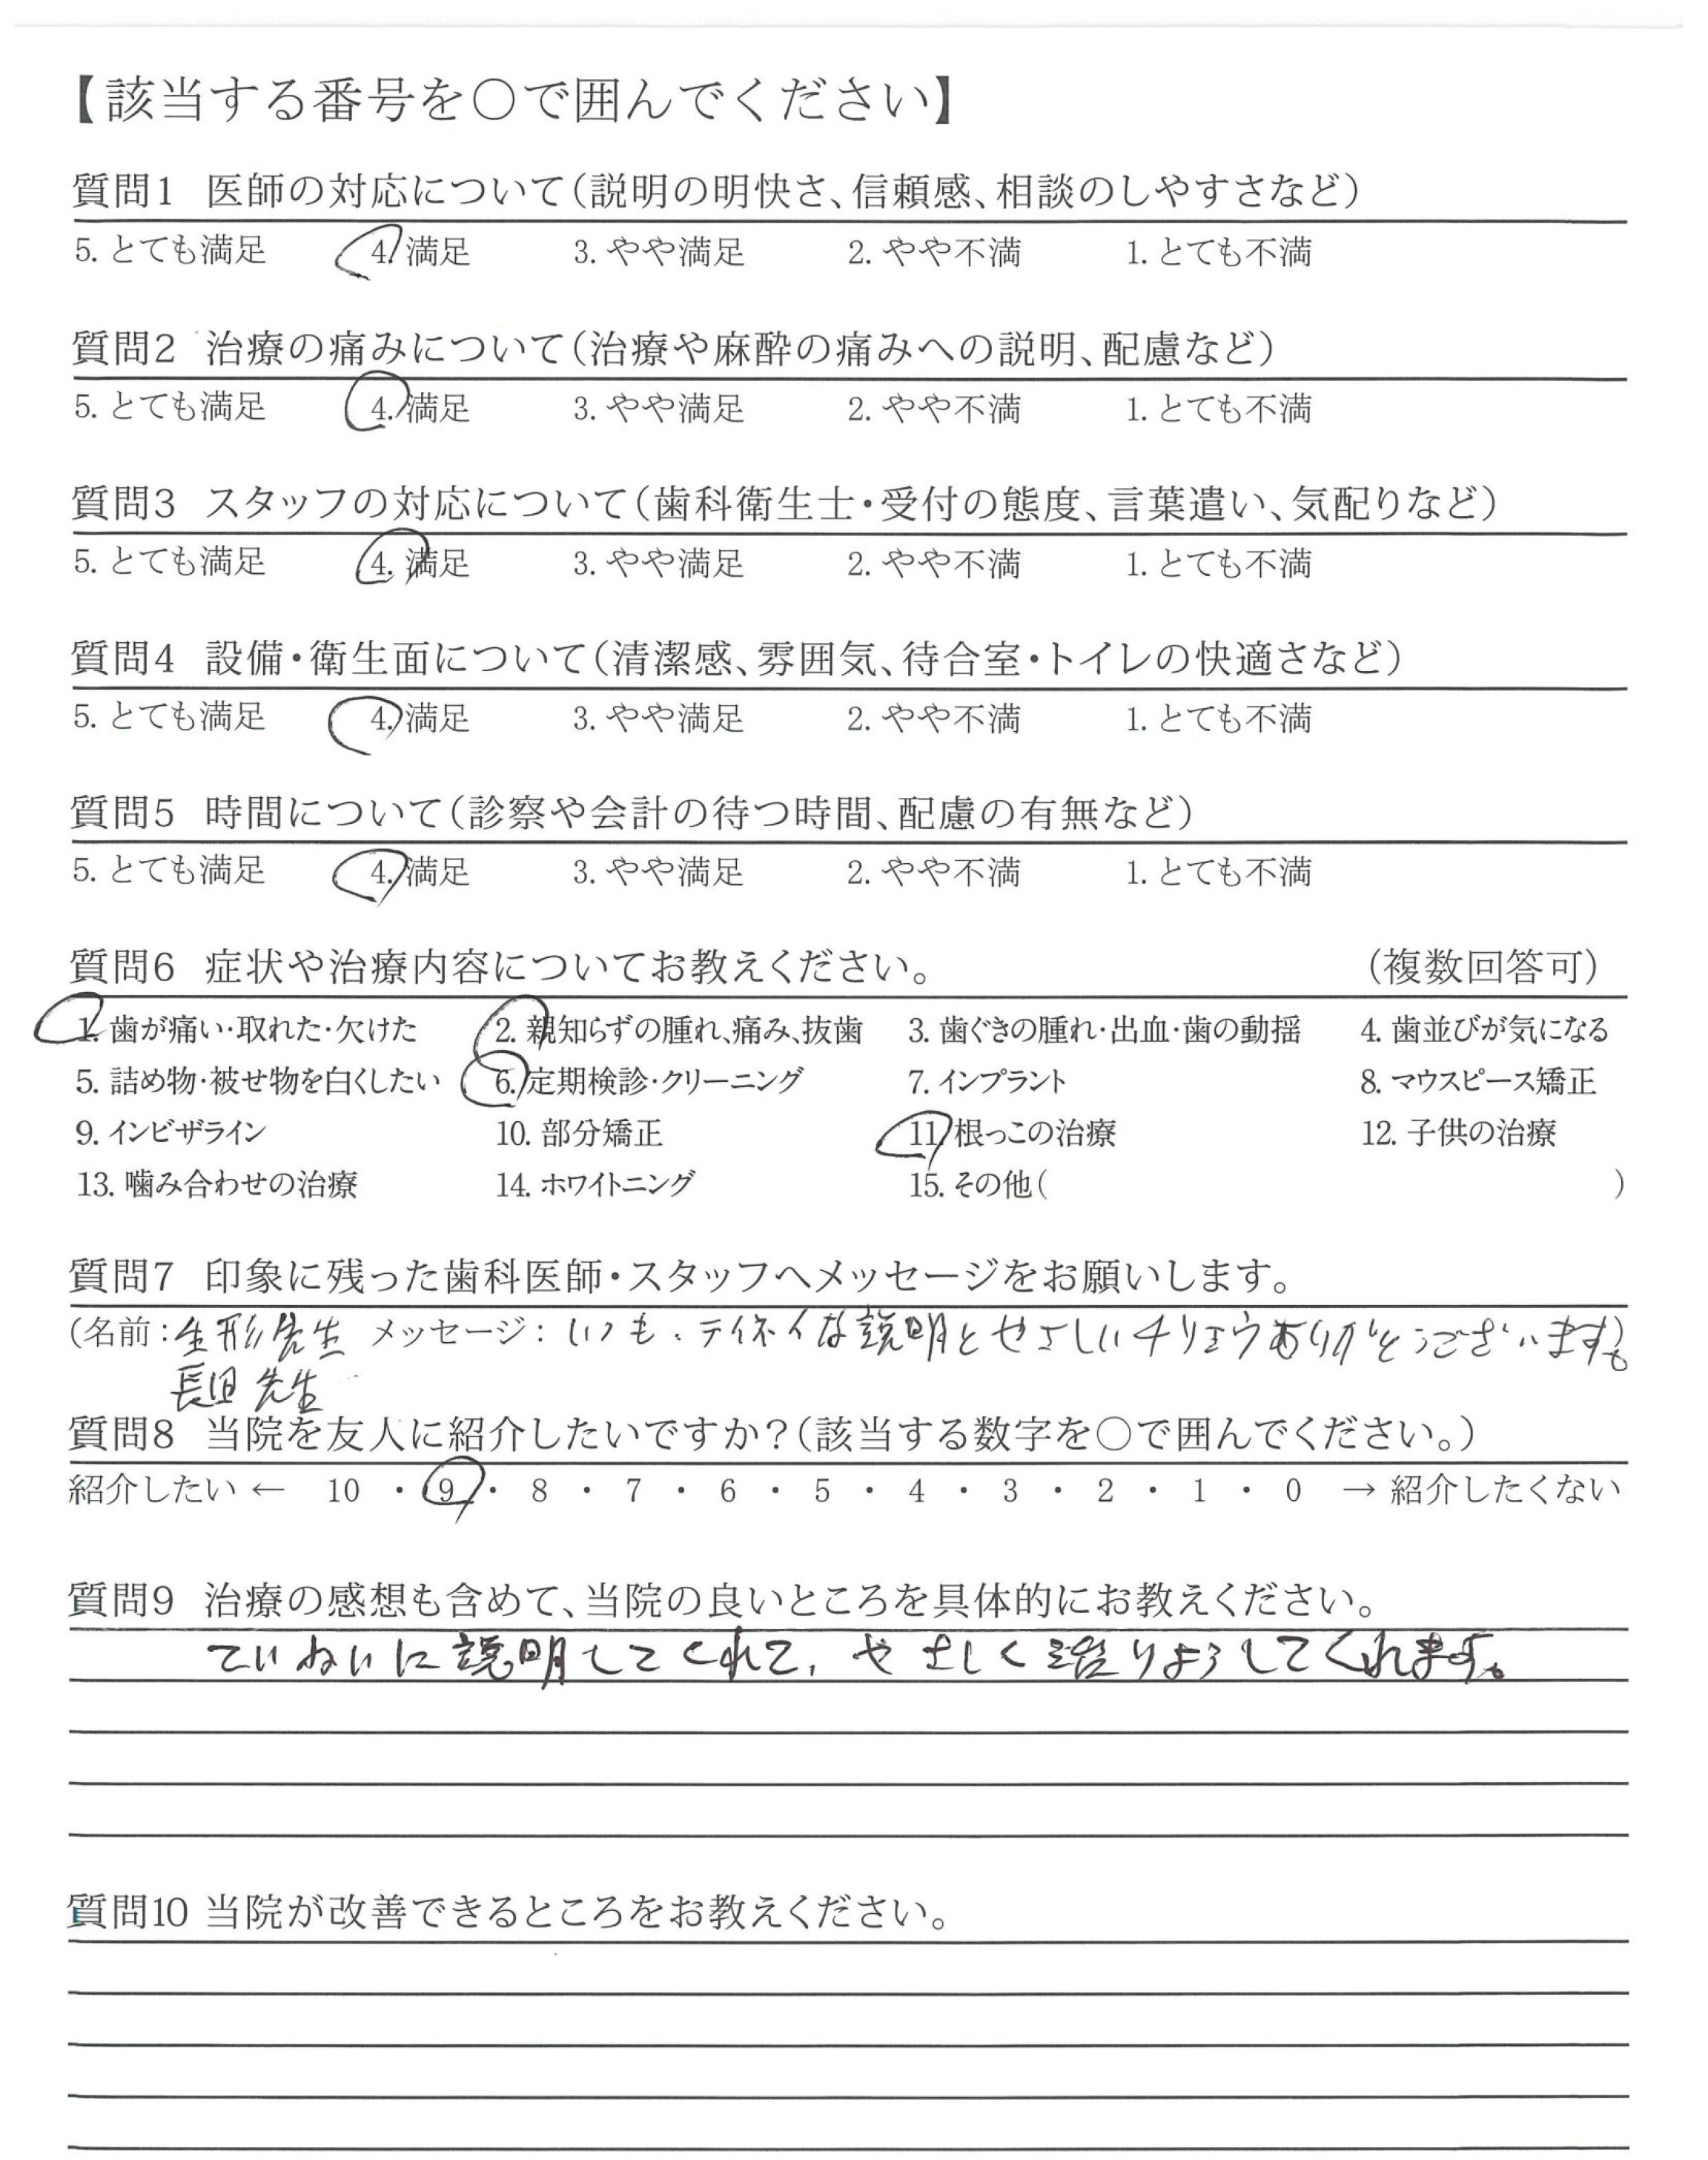 【該当する番号を○で囲んでください】
質問1 医師の対応について(説明の明快さ、信頼感、相談のしやすさなど)
5. とても満足 4. 満足 3. やや満足 2. やや不満 1. とても不満
質問2 治療の痛みについて(治療や麻酔の痛みへの説明、配慮など)
5. とても満足 4. 満足 3. やや満足 2. やや不満 1. とても不満
質問3 スタッフの対応について(歯科衛生士・受付の態度、言葉遣い、気配りなど)
5. とても満足 4. 満足 3. やや満足 2. やや不満 1. とても不満
質問4 設備・衛生面について(清潔感、雰囲気、待合室・トイレの快適さなど)
5. とても満足 4. 満足 3. やや満足 2. やや不満 1. とても不満
質問5 時間について(診察や会計の待つ時間、配慮の有無など)
5. とても満足 4. 満足 3. やや満足 2. やや不満 1. とても不満
質問6 症状や治療内容についてお教えください。 (複数回答可)
1. 歯が痛い・取れた・欠けた 2. 親知らずの腫れ、痛み、抜歯 3. 歯ぐきの腫れ・出血・歯の動揺 4. 歯並びが気になる
5. 詰め物・被せ物を白くしたい 6. 定期検診・クリーニング 7. インプラント 8. マウスピース矯正
9. インビザライン 10. 部分矯正 11. 根っこの治療 12. 子供の治療
13. 噛み合わせの治療 14. ホワイトニング 15. その他( )
質問7 印象に残った歯科医師・スタッフへメッセージをお願いします。
(名前:生形先生 メッセージ: いつも、テイネイな説明とやさしいチリョウありがとうございます。)
長田先生
質問8 当院を友人に紹介したいですか?(該当する数字を○で囲んでください。)
紹介したい ← 10 ・ 9 ・ 8 ・ 7 ・ 6 ・ 5 ・ 4 ・ 3 ・ 2 ・ 1 ・ 0 → 紹介したくない
質問9 治療の感想も含めて、当院の良いところを具体的にお教えください。
ていねいに説明してくれて、やさしく治りょうしてくれます。
質問10 当院が改善できるところをお教えください。